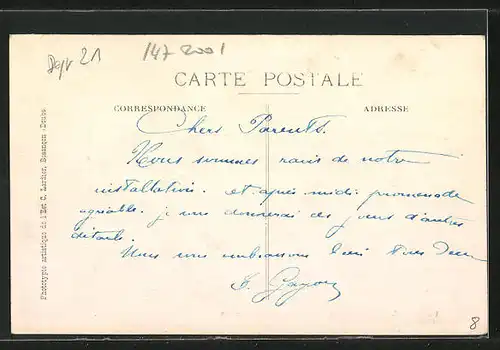 Dept 21
147 2001
CARTE POSTALE
CORRESPONDANCE
ADRESSE
Chers Parents.
Nous sommes ravis de notre
installation. et après midi promenade
agréable. je vous donnerai ces jours d'autres
détails.
Nous vous embrassons bien tous deux
Phototypie artistique de l'Est C. Lardier, Besançon
8